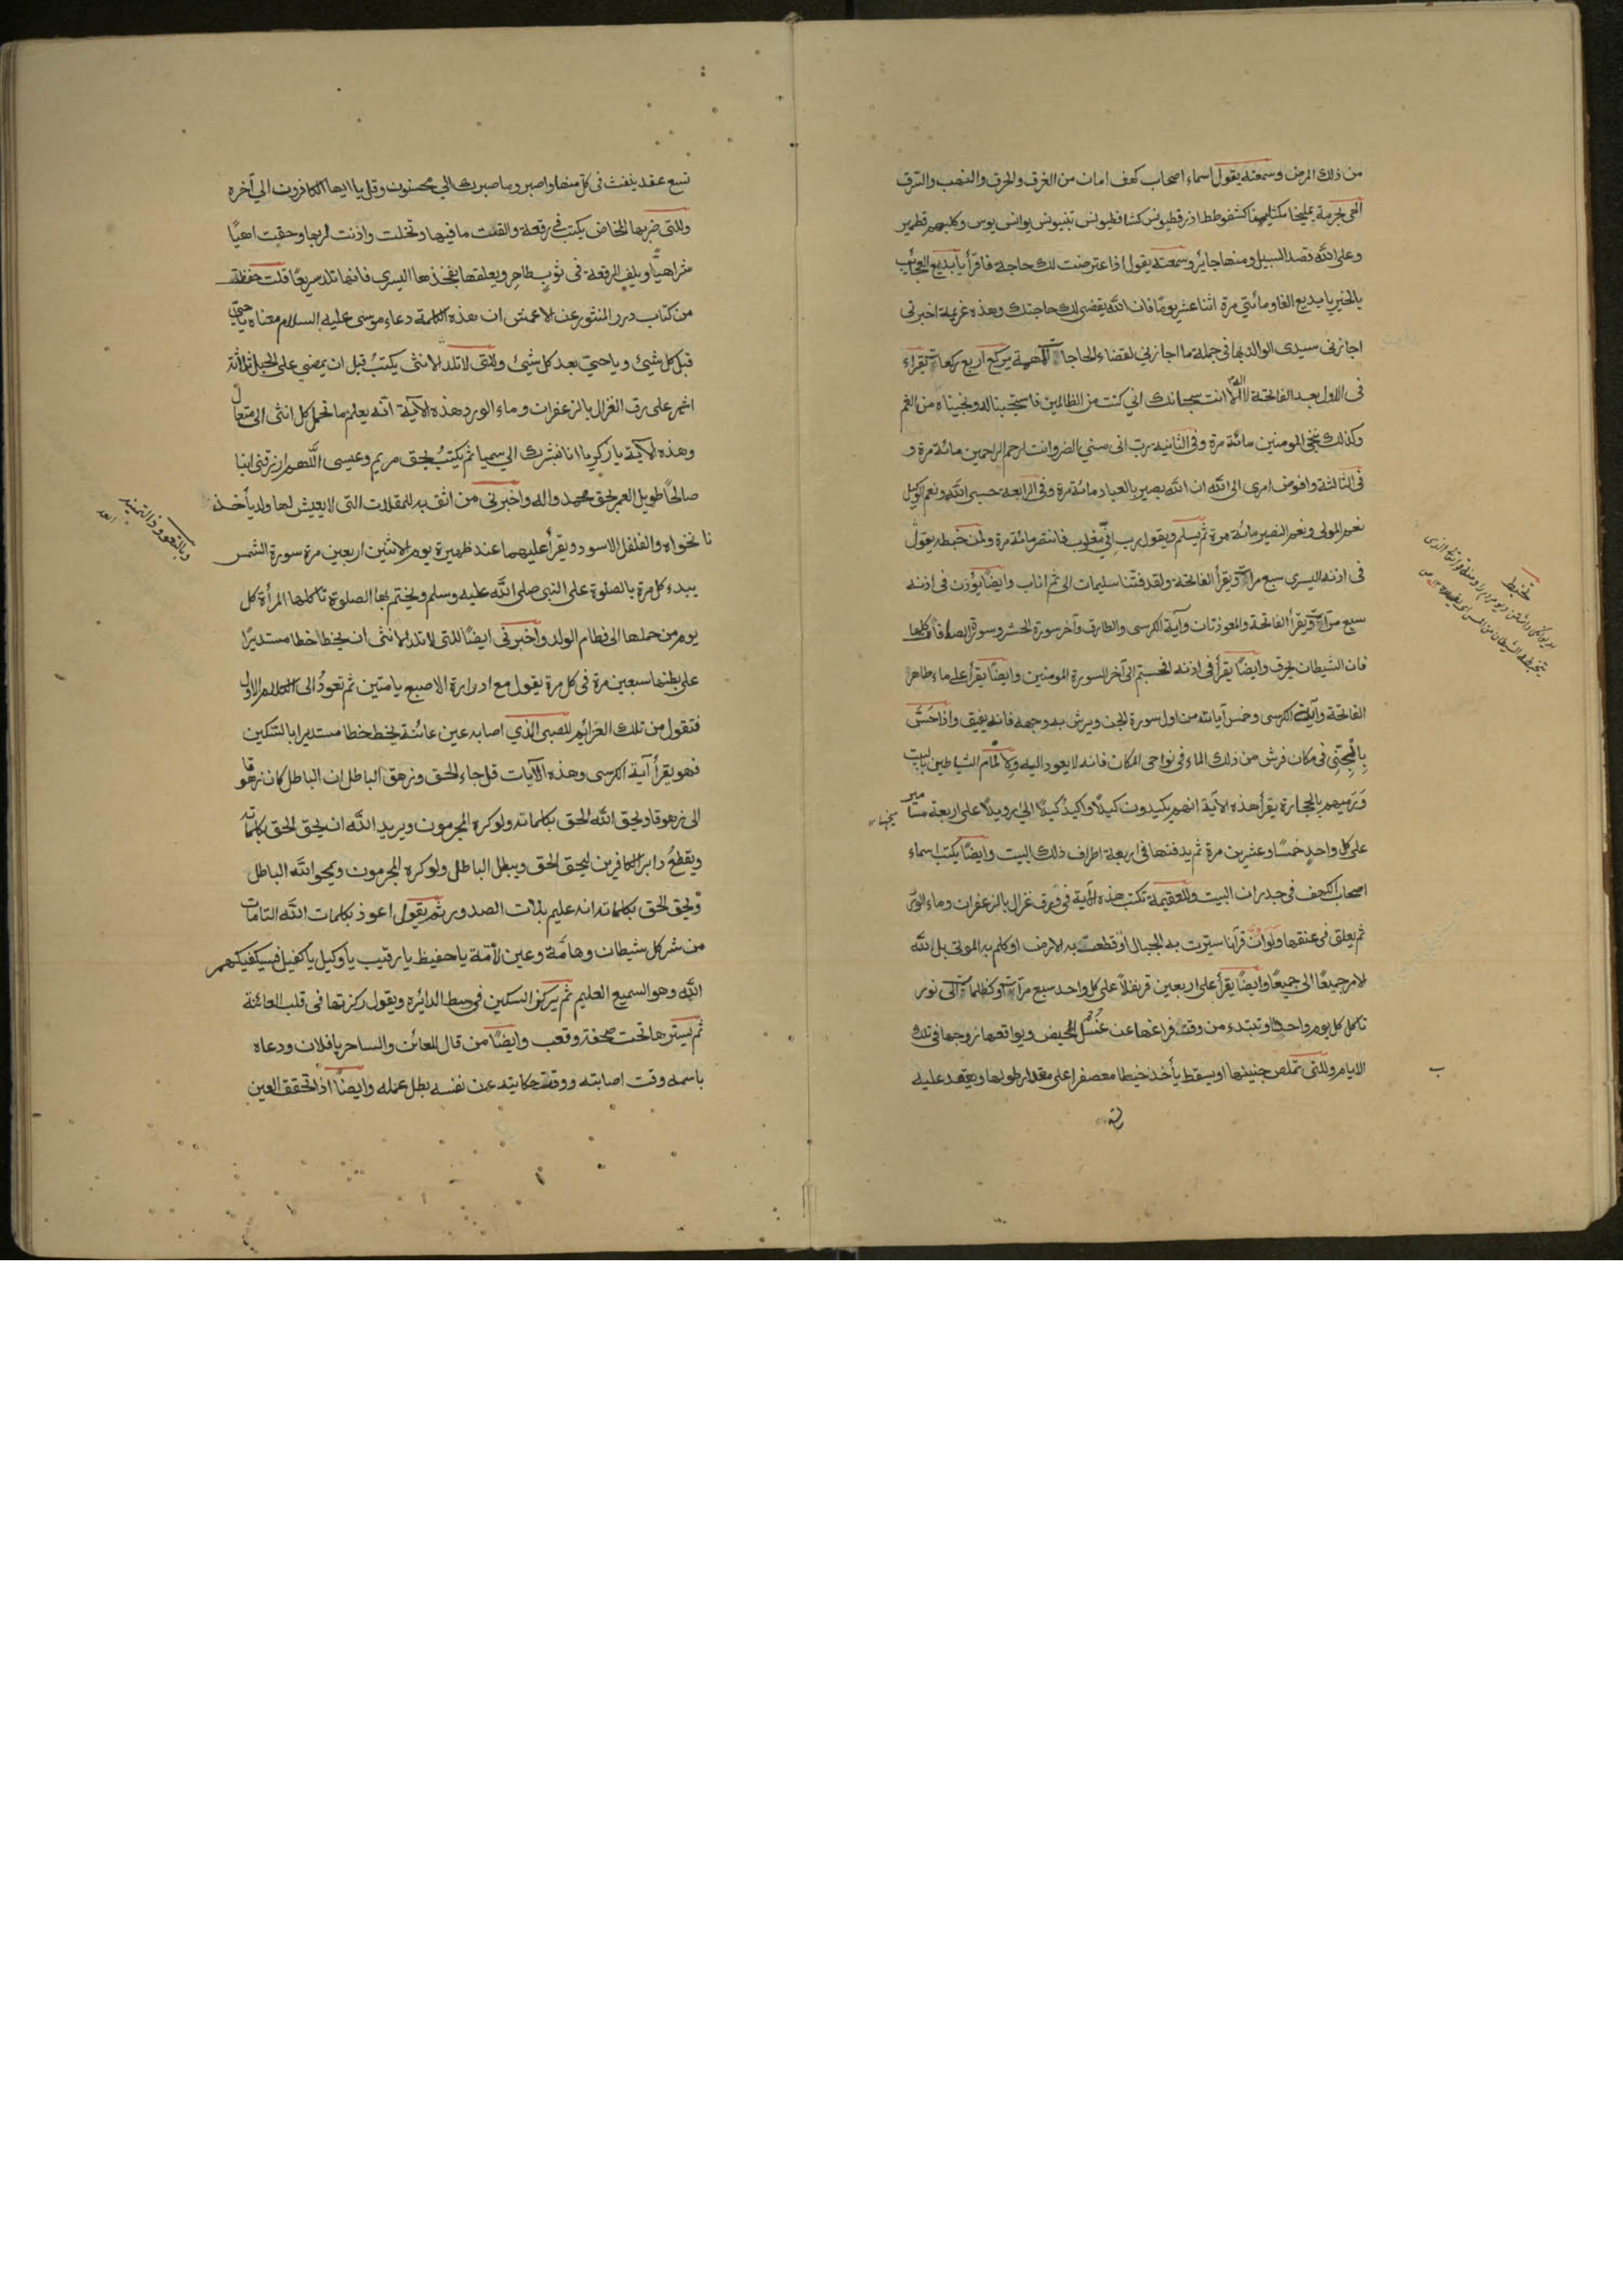 من ذلك المرض وسمعته يقول اسماء اصحاب كهف امان من الغرق والحرق والنهب والسرق
الهى بحرمة يمليخا مكثلمينا كشفوطط اذرفطيونس كشافطيونس تبيونس يوانس بوس وكلبهم قطمير
وعلى الله قصد السبيل ومنها جائر وسمعته يقول اذا عترضت لك حاجة فاقرأ يا بديع العجائب
بالخير يا بديع الفا ومائتى مرة اثنا عشر يوما فان الله يقضى لك حاجتك وهذه عزيمة اخبرنى
اجازنى سيدى الوالد بها فى جملة ما اجازنى لقضاء الحاجات المهمة يركع اربع ركعات يقراء
فى الاول بعد الفاتحة لا اله الا انت سبحانك انى كنت من الظالمين فاستجبنا له ونجيناه من الغم
وكذلك ننجى المومنين مائة مرة وفى الثانية رب انى مسنى الضر وانت ارحم الراحمين مائة مرة و
فى الثالثة وافوض امرى الى الله ان الله بصير بالعباد مائة مرة وفى الرابعة حسبى الله ونعم الوكيل
نعم المولى ونعم النصير مائة مرة ثم يسلم ويقول رب انى مغلوب فانتصر مائة مرة ولمن خبطه يقول
فى اذنه اليسرى سبع مرات ويقرأ الفاتحة ولقد فتنا سليمان الى ثم اناب وايضا يؤذن فى اذنه
سبع مرات ويقرأ الفاتحة والمعوذتان وآية الكرسى والطارق وآخر سورة الحشر وسورة الصافات كلها
فان الشيطان يحرق وايضا يقرأ فى اذنه افحسبتم الى آخر السورة المومنين وايضا يقرأ على ماء طاهر
الفاتحة وآية الكرسى وخمس آيات من اول سورة الجن ويرش به وجهه فانه يفيق واذا حَسّ
بِالْجِنِّى فى مكان فرش من ذلك الماء فى نواحى المكان فانه لا يعود اليه الشياطين بالبيت
وَرَميهم بالحجارة يقرأ هذه الاية انهم يكيدون كيدًا واكيد كيدًا الى رويدًا على اربعة مسامير
على كل واحدٍ خمسًا وعشرين مرة ثم يدفنها فى اربعة اطراف ذلك البيت وايضا يكتب اسماء
اصحاب الكهف فى جدران البيت وللعقيمة تكتب هذه الآية فى رق غزال بالزعفران وماء الورد
ثم يعلق فى عنقها ولو ان قرآنا سيرت به الجبال او قطعت به الارض او كلم به الموتى بل لله
الامر جميعًا الى جميعًا وايضًا يقرأ على اربعين قرنفلاً على كل واحد سبع مرات او كظلمات الى نور
تاكل كل يوم واحدا وتبتدء من وقت فراغها عن غسل الحيض ويواقعها زوجها فى تلك
الايام وللتى تملص جنينها او يسقط يأخذ خيطا معصفرا على مقدار طولها ويعقد عليه
تخبط
تسع عقد ينفث فى كل منها واصبر وما صبرك الى محسنون وقل يا ايها الكافرون الى آخره
وللتى ضربها المخاض يكتب فى رقعة والقت ما فيها وتخلت واذنت لربها وحقت اهيًا
شراهيًا ويلف الرقعة فى ثوب طاهر ويعلقها بفخذها اليسرى فانها تلد سريعًا قلت حفظته
من كتاب درر المنثور عن الاعمش ان هذه الكلمة دعاء موسى عليه السلام معناه يا حىّ
قبل كل شيئ ويا حىّ بعد كل شيئ وللتى لا تلد الا انثى يكتبُ قبل ان يمضى على الحبل ثلاثة
اشهر على رق الغزال بالزعفران وماء الورد هذه الآية الله يعلم ما تحمل كل انثى الى متعال
وهذه الاية يا زكريا انا نبشرك الى سميا ثم يكتبُ بحق مريم وعيسى اللهم ارزقنى ابنا
صالحًا طويل العمر بحق محمد واله واخبرنى من اثق به للمقلات التى لا يعيش لها ولد يأخذ
نانخواه والفلفل الاسود ويقرأ عليهما عند ظهيرة يوم الاثنين اربعين مرة سورة الشمس
يبدء كل مرة بالصلوة على النبى صلى الله عليه وسلم ويختم بها الصلوة تاكلها المرأة كل
يوم من حملها الى فطام الولد واخبرنى ايضًا للتى لا تلد الا انثى ان يخط خطا مستديرًا
على بطنها سبعين مرة فى كل مرة يقول مع ادارة الاصبع يا متين ثم تعودُ الى الكلام الاول
فتقول من تلك العزائم للصبى الذي اصابه عين عائنة يخط خطا مستديرا بالسكين
فهو يقرأ آية الكرسى وهذه الآيات قل جاء الحق وزهق الباطل ان الباطل كان زهوقا
الى زهوقا ويحق الله الحق بكلماته ولو كره المجرمون ويريد الله ان يحق الحق بكلماته
ويقطعُ دابر الكافرين ليحق الحق ويبطل الباطل ولو كره المجرمون ويمحو الله الباطل
ويحق الحق بكلماته انه عليم بذات الصدور ثم يقول اعوذ بكلمات الله التامات
من شر كل شيطان وهامّة وعين لامّة يا حفيظ يا رقيب يا وكيل يا كفيل فسيكفيكهم
الله وهو السميع العليم ثم يركز السكين فى وسط الدائرة ويقول ركزتها فى قلب العائنة
ثم يسترها تحت صحفة وقعب وايضًا من قال للعائن والساحر يا فلان ودعاه
باسمه وقت اصابته ووقت حكايته عن نفسه بطل عمله وايضًا اذا تحقق العين